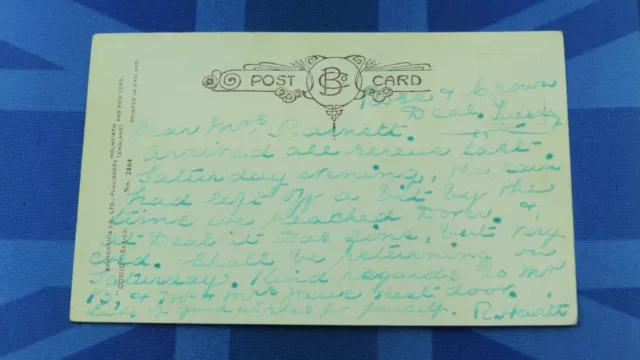 POST CARD
BCo
& Crown
Deal. Tuesday
Dear Mrs Barnett.
arrived all serene last
Saturday evening, the rain
had left off a bit by the
time we reached Dover, &
at Deal it was fine, but very
cold. Shall be returning on
Saturday. Kind regards to Mr
B, & Mr & Mrs next door.
Lots of good wishes for yourself. R. Hewitt
BAMFORTH & CO., LTD., PUBLISHERS HOLMFIRTH (ENGLAND) AND NEW YORK.
"COMIC" SERIES. No. 2464
PRINTED IN ENGLAND.